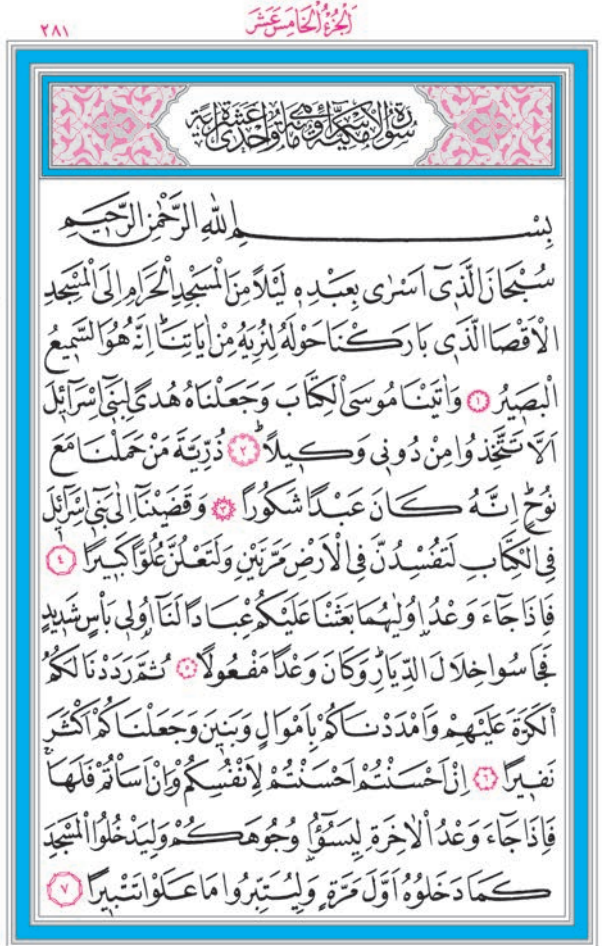 اَلْجُزْءُ الْخَامِسَ عَشَرَ
٢٨١
سُورَةُ الْاِسْرَاءِ مَكِّيَّةٌ وَهِيَ مِائَةٌ وَاِحْدٰى عَشْرَةَ اٰيَةً
بِسْمِ اللّٰهِ الرَّحْمٰنِ الرَّحٖيمِ
سُبْحَانَ الَّذٖٓي اَسْرٰى بِعَبْدِهٖ لَيْلًا مِنَ الْمَسْجِدِ الْحَرَامِ اِلَى الْمَسْجِدِ
الْاَقْصَا الَّذٖي بَارَكْنَا حَوْلَهُ لِنُرِيَهُ مِنْ اٰيَاتِنَاۜ اِنَّهُ هُوَ السَّمٖيعُ
الْبَصٖيرُ ﴿١﴾ وَاٰتَيْنَا مُوسَى الْكِتَابَ وَجَعَلْنَاهُ هُدًى لِبَنٖٓي اِسْرَٓائٖلَ
اَلَّا تَتَّخِذُوا مِنْ دُونٖي وَكٖيلًاۜ ﴿٢﴾ ذُرِّيَّةَ مَنْ حَمَلْنَا مَعَ
نُوحٍۜ اِنَّهُ كَانَ عَبْدًا شَكُورًا ﴿٣﴾ وَقَضَيْنَٓا اِلٰى بَنٖٓي اِسْرَٓائٖلَ
فِي الْكِتَابِ لَتُفْسِدُنَّ فِي الْاَرْضِ مَرَّتَيْنِ وَلَتَعْلُنَّ عُلُوًّا كَبٖيرًا ﴿٤﴾
فَاِذَا جَٓاءَ وَعْدُ اُو۫لٰيهُمَا بَعَثْنَا عَلَيْكُمْ عِبَادًا لَنَٓا اُو۬لٖي بَأْسٍ شَدٖيدٍ
فَجَاسُوا خِلَالَ الدِّيَارِۜ وَكَانَ وَعْدًا مَفْعُولًا ﴿٥﴾ ثُمَّ رَدَدْنَا لَكُمُ
الْكَرَّةَ عَلَيْهِمْ وَاَمْدَدْنَاكُمْ بِاَمْوَالٍ وَبَنٖينَ وَجَعَلْنَاكُمْ اَكْثَرَ
نَفٖيرًا ﴿٦﴾ اِنْ اَحْسَنْتُمْ اَحْسَنْتُمْ لِاَنْفُسِكُمْ وَاِنْ اَسَأْتُمْ فَلَهَاۜ
فَاِذَا جَٓاءَ وَعْدُ الْاٰخِرَةِ لِيَسُٓؤُ۫ا وُجُوهَكُمْ وَلِيَدْخُلُوا الْمَسْجِدَ
كَمَا دَخَلُوهُ اَوَّلَ مَرَّةٍ وَلِيُتَبِّرُوا مَا عَلَوْا تَتْبٖيرًا ﴿٧﴾